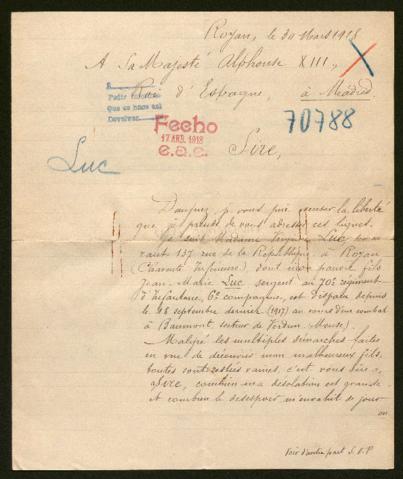 Royan, le 30 Mars 1918
A Sa Majesté Alphonse XIII,
Roi d'Espagne, à Madrid.
Pedir
Que se haga así
Devolver
Fecho
17 ABR. 1918
e.a.c.
70788
Luc
Sire,
Daignez, je vous prie, excuser la liberté
que je prends de vous adresser ces lignes.
Je suis Madame Luc
137 rue de la République à Royan
(Charente Inférieure), dont mon pauvre fils
Jean-Marie Luc sergent au 70e régiment
d'Infanterie, 6e compagnie, est disparu depuis
le 25 septembre dernier (1917) au cours d'un combat
à Beaumont, secteur de Verdun (Meuse).
Malgré les multiples démarches faites
en vue de découvrir mon malheureux fils,
toutes sont restées vaines, c'est vous dire,
Sire, combien ma désolation est grande
et combien le désespoir m'envahit de jour
en
Voir d'autre part S.V.P